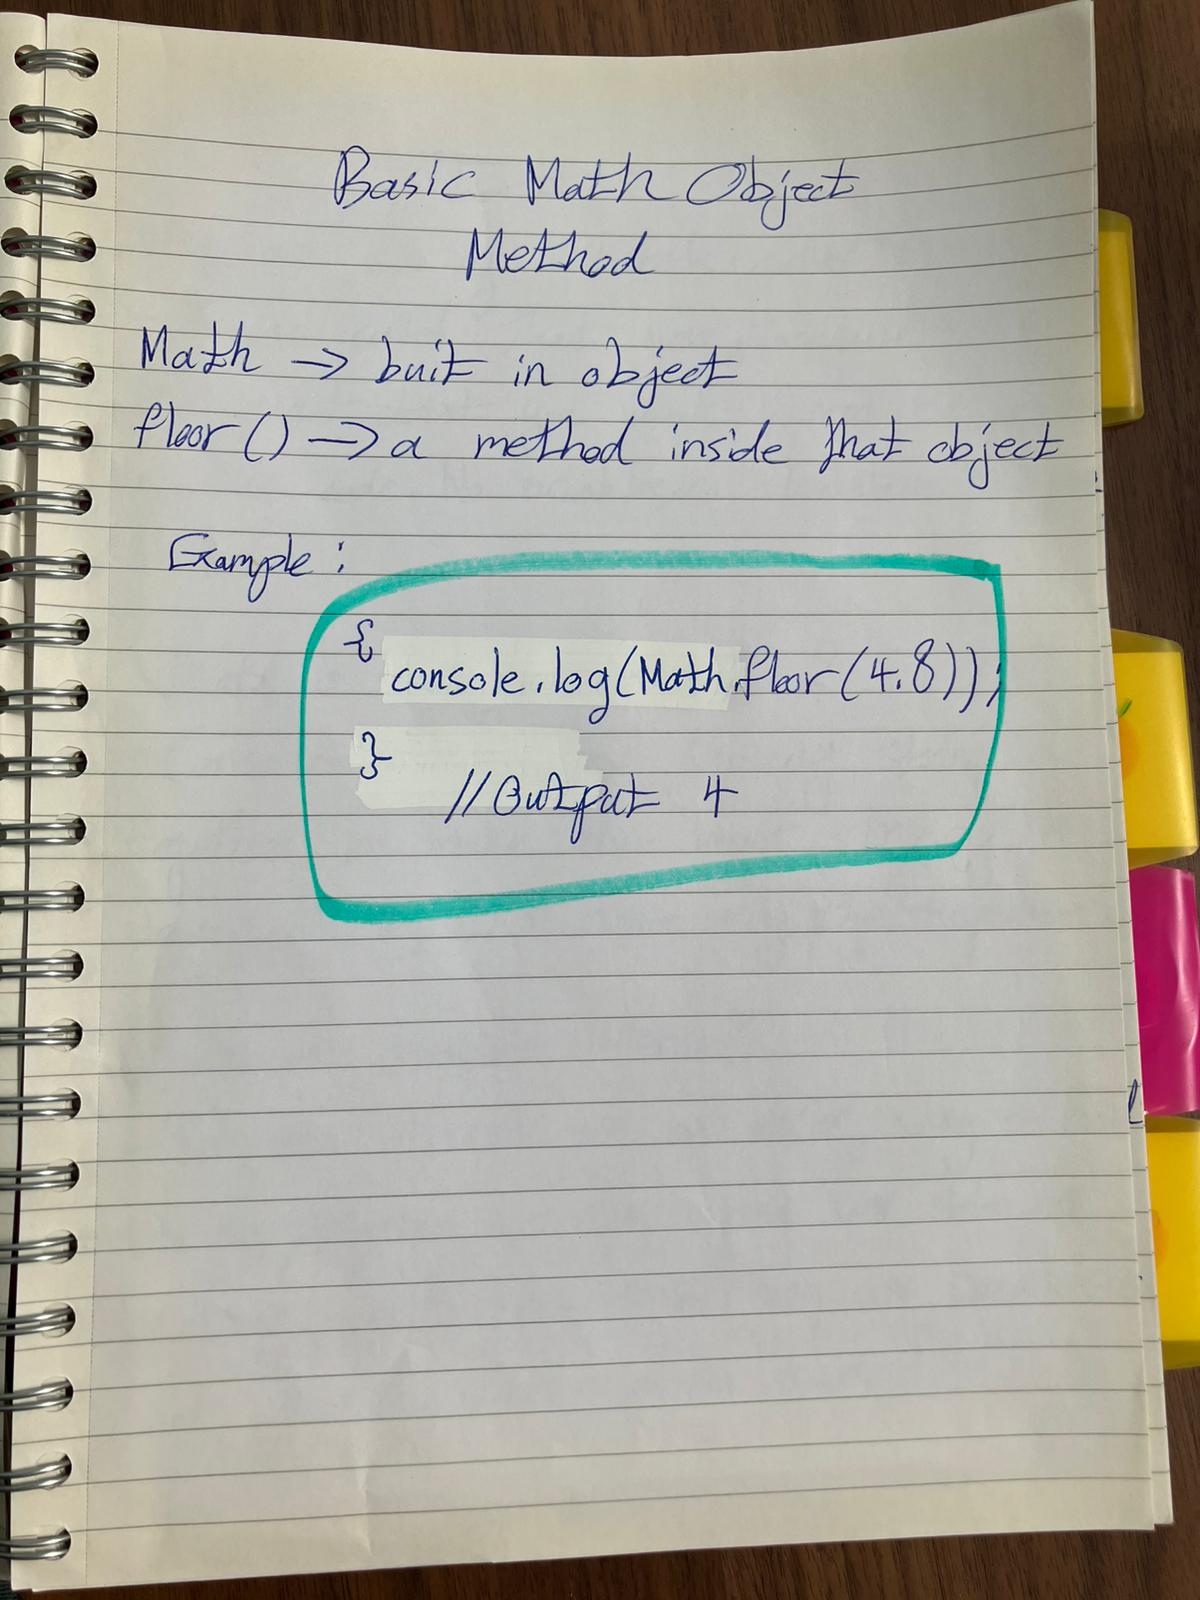 Basic Math Object
Method
Math → buit in object
floor() → a method inside that object
Example :
{
console.log(Math.floor(4.8));
}
//Output 4